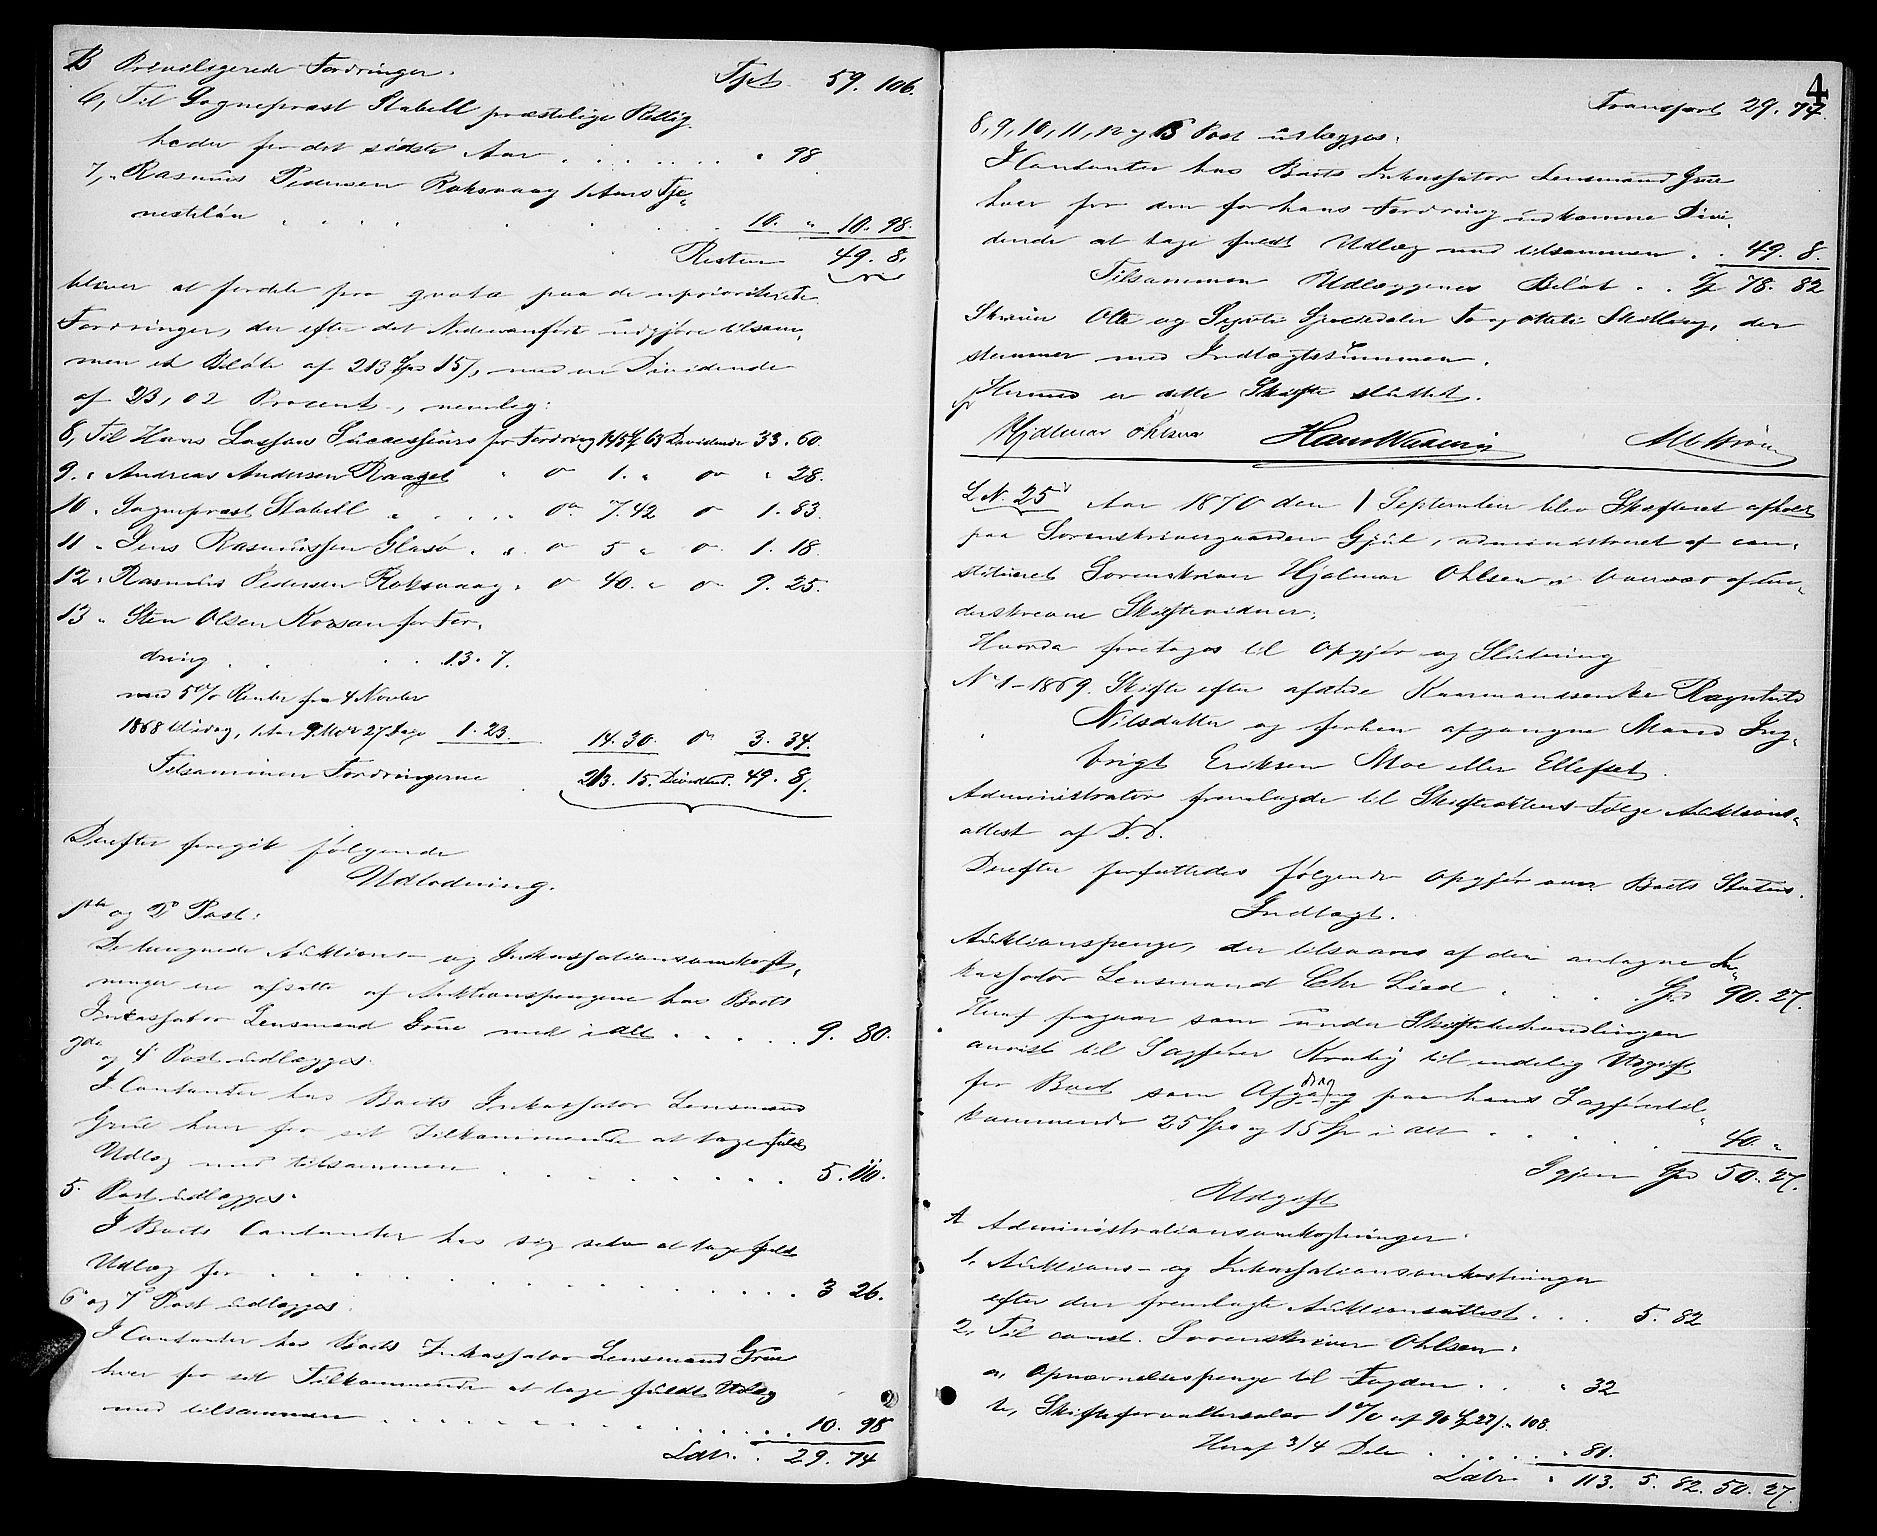 B Privilegerede Fordringer. Tpt. 59. 106.
6, Til Sogneprest Stabell præstelige Rettig-
heder for det sidste Aar . . . . . . „ 98
7, „ Rasmus Pedersen Roksvaag 1 Aars Tje-
nesteløn . . . . . 10. „ 10. 98.
Resten 49. 8.
bliver at fordele pro qvota paa de uprioriterede
Fordringer, der efter det Nedenanførte udgjøre tilsam-
men et Beløb af 213 Spd 15 s, med en Dividende
af 23,02 Procent, nemlig:
8, Til Hans Lossius Successeurs for Fordring 145 63 Dividende 33. 60.
9. „ Andreas Andersen Raaget „ do 1. „ do „ 28.
10. „ Sogneprest Stabell „ . . . do 7. 42 do 1. 83.
11 „ Jens Rasmussen Glasø . „ do 5 „ do 1. 18.
12. „ Rasmus Pedersen Roksvaag „ do 40. „ do 9. 25.
13 „ Sten Olsen Korsan for For-
dring . . . . 13. 7.
med 5 0/0 Renter fra 4 Novbr
1868 til idag, 1 Aar 9 Mdr 27 Dage 1. 23. 14. 30. do 3. 34.
Tilsammen Fordringerne 213. 15. Dividend. 49. 8.
Derefter foregik følgende
Udlodning.
1ste og 2 Post:
De beregnede Auktions- og Inkassationsomkost-
ninger ere afsatte af Auktionspengene hos Boets
Inkassator Lensmand Grüe med idet . . . . . 9. 80.
3die og 4 Post udlægges:
I Contanter hos Boets Inkassator Lensmand
Grüe hver for sit Tilkommende at tage fuldt
Udlæg med tilsammen . . . . . . . 5. 110.
5 Post udlægges:
I Boets Contanter hos sig selv at tage fuldt
Udlæg for . . . . . . . . . . . 3 26.
6 og 7 Post udlægges:
I Contanter hos Boets Inkassator Lensmand Grüe
hver for sit Tilkommende at tage fuldt Udlæg
med tilsammen . . . . . . . . . 10. 98
Latr. . 29. 74
4
Transport 29. 74.
8, 9, 10, 11, 12 og 13 Post udlægges:
I Contanter hos Boets Inkassator Lensmand Grüe
hver for den for hans Fordring udkomne Divi-
dende at tage fuldt Udlæg med tilsammen . . 49. 8.
Tilsammen Udlæggenes Beløb . . Sp 78. 82
Skriver Otte og Sytti Speciedaler To og otteti Skilling, der
stemmer med Indtægtssummen.
Hermed er dette Skifte sluttet.
Hjalmar Ohlsen Hans M Strøm
L. N. 25 Aar 1870 den 1 September blev Skifteret afholdt
paa Sorenskrivergaarden Gjül, administreret af con-
stitueret Sorenskriver Hjalmar Ohlsen i Overvær af un-
derskrevne Skiftevidner.
Hvorda foretoges til Opgjør og Slutning
N. 1 - 1869. Skifte efter afdøde Kaarmandsenke Ragnhild
Nilsdatter og forhen afgangne Mand Ing-
brigt Eriksen Moe eller Ellefset.
Administrator fremlagde til Skifteaktens Følge Auktions-
attest af D. D.
Derefter forfattedes følgende Opgjør over Boets Status.
Indtægt.
Auktionspenge, der tilsvares af den antagne In-
kassator Lensmand Chr Lied . . . . Spd 90. 27.
Heraf fragaar som under Skiftebehandlingen
anvist til Sagfører Krohg til endelig Udgift
for Boet som Afgang drag paa hans Sagførertil-
kommende 25 Spd og 15 Spd i alt . . . . . . 40. „
Igjen Spd 50. 27.
Udgift
A Administrationsomkostninger:
1. Auktions- og Inkassationsomkostninger
efter den fremlagte Auktionsattest . . . 5. 82
2, Til const. Sorenskriver Ohlsen:
a, Opnævnelsespenge til Fogden . . „ 32
b, Skifteforvaltersalær 1 0/0 af 90 Sp 27 s „ 108.
Heraf 3/4 Dele . . . . . „ 81.
Latr „ 113. 5. 82. 50. 27.